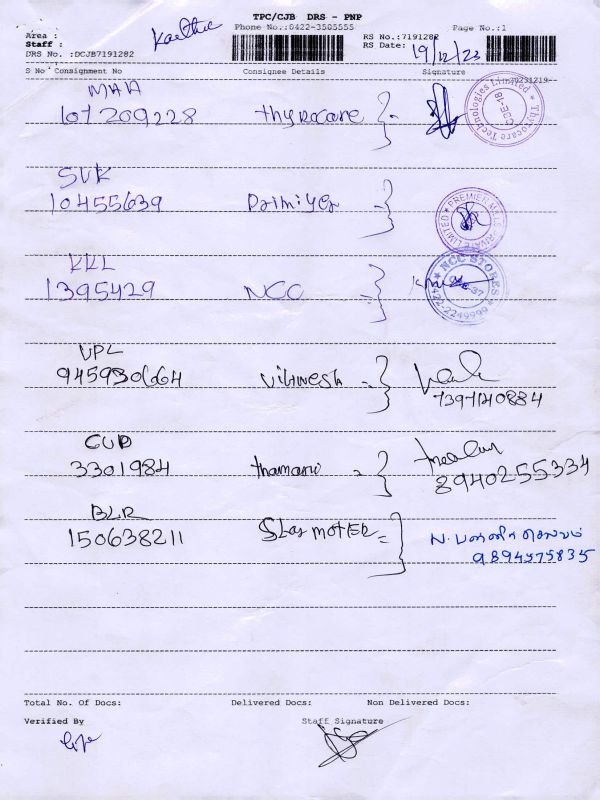 TPC/CJB DRS - PNP
Phone No.:0422-3505555
Page No.:1
Area :
Staff :
DRS No. :DCJB7191282
RS No.:7191282
RS Date: 19/12/23
S No Consignment No Consignee Details Signature
20231219
MAA
107209228 thyrocare
Thyrocare Technologies Limited
CJE-18
SVK
10455639
PREMIER MILLS PRIVATE LIMITED
KKL
1395429 NCC
NCC STORES
0422-2249999
VPL
945930664 Vihnesh
7397140884
CUD
3301984 thamarai
8940255334
BLR
150638211 Star MOTER
N. பன்னீர் செல்வம்
9894575835
Total No. Of Docs: Delivered Docs: Non Delivered Docs:
Verified By Staff Signature